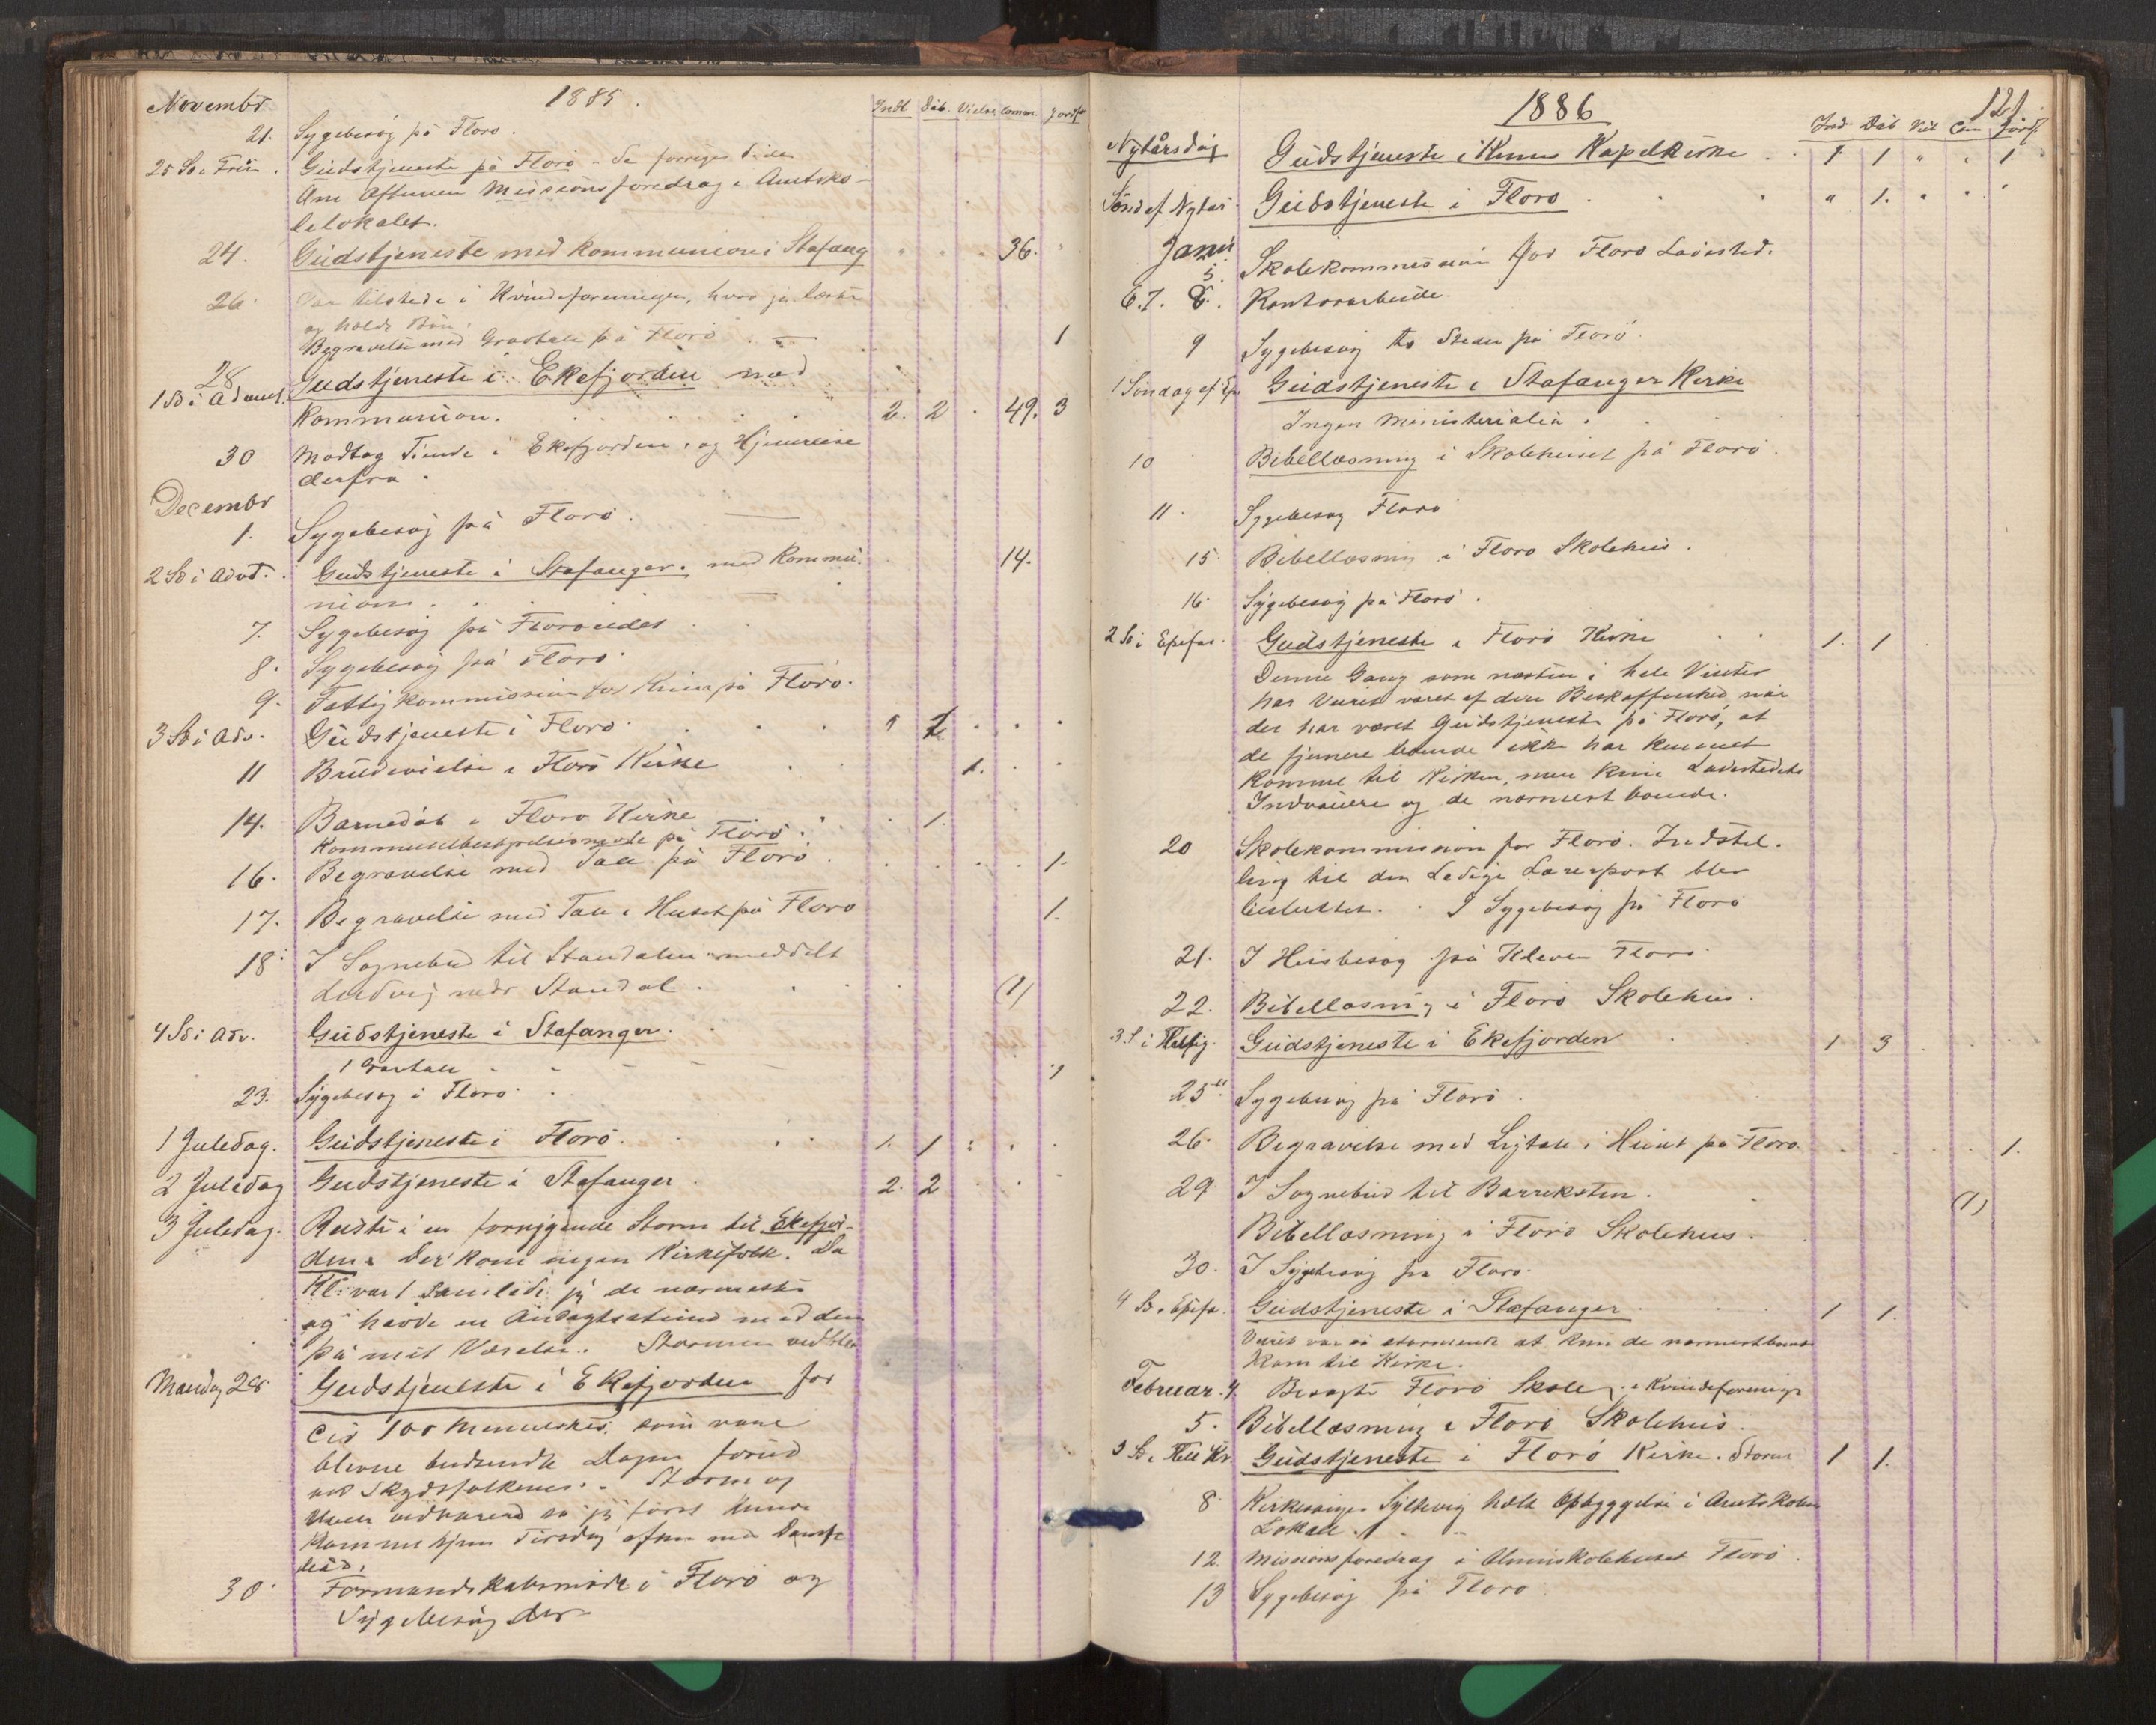 Novembr 1885. Indl. Dåb. Vielse Comm. Jordf
21. Sygebesøg på Florø.
25 Sø e Trin. Gudstjeneste på Florø - Se forriges Side
Om Aftenen Missionsforedrag i Amtsko-
lelokalet.
24. Gudstjeneste med Kommunion i Stafang 36.
26. Var tilstede i Kvindeforeningen, hvor jeg læste
og holdt Bøn.
28 Begravelse med Gravtale på Florø 1
1 Sø i Advent. Gudstjeneste i Ekefjorden med
Kommunion. 2. 2 49. 3
30 Modtog Tiende i Ekefjorden og Hjemreise
derfra.
Decembr
1. Sygebesøg på Florø.
2 Sø i Advt. Gudstjeneste i Stafanger. med Kommu- 14.
nion.
7. Sygebesøg på Florølandet
8. Sygebesøg på Florø
9. Fattigkommission for Kinn på Florø.
3 Sø i Adv. Gudstjeneste i Florø 1
11 Brudevielse i Florø Kirke 1.
14. Barnedåb i Florø Kirke 1.
Kommunebestyrelsesmøde på Florø.
16. Begravelse med Tale på Florø 1.
17. Begravelse med Tale i Huset på Florø 1.
18. I Sognebud til Standalen meddelt
Ludvig Standal. (1)
4 Sø i Adv. Gudstjeneste i Stafanger.
1 Gravtale 1
23. Sygebesøg i Florø
1 Juledag. Gudstjeneste i Florø. 1. 1
2 Juledag Gudstjeneste i Stafanger 2. 2
3 Juledag. Reiste i en forrygende Storm til Ekefjor-
den. Der kom ingen Kirkefolk. Da
Kl. var 1 samlede jeg de nærmeste
og havde en Andagtsstund med dem
på mit Værelse. Stormen vedblev
Mandag 28. Gudstjeneste i Ekefjorden for
100 Mennesker, som vare
blevne budsendte Dagen forud
ved Skydsfolkene. Storm og
vedvarend så jeg først kunde
komme hjem Tirsdag aften med Damp-
båd.
30. Formandskabsmøde i Florø og
Sygebesøg der
1886 121.
Ind Dåb Viel Com Jordf.
Nytårsdag Gudstjeneste i Kinns Kapelkirke 1 1 " " 1
Sønd ef Nytår Gudstjeneste i Florø " 1. " "
Janr
5. Skolekommission for Florø Ladested.
6. 7. 8. Kontorarbeide
9 Sygebesøg to Steder på Florø
1 Søndag ef Ep. Gudstjeneste i Stafanger Kirke
Ingen Ministerialia.
10 Bibellæsning i Skolehuset på Florø.
11. Sygebesøg Florø
15. Bibellæsning i Florø Skolehus.
16. Sygebesøg på Florø.
2 Sø i Epefan. Gudstjeneste i Florø Kirke 1. 1
Denne Gang som næsten i hele Vinter
har Veiret været af den Beskaffenhed, når
der har været Gudstjeneste på Florø, at
de fjernere boende ikke har kunnet
komme til Kirken, men kun Ladestedets
Indvånere og de nærmest boende.
20 Skolekommission for Florø. Indstil-
ling til den Ledige Lærerpost blev
besluttet. I Sygebesøg på Florø
21. I Husbesøg på Kleven Florø
22. Bibellæsning i Florø Skolehus.
3 S i Hellig. Gudstjeneste i Ekefjorden 1 3
25 Sygebesøg på Florø.
26. Begravelse med Ligtale i Huset på Florø. 1.
29 I Sognebud til Barreksten. (1)
Bibellæsning i Florø Skolehus.
30. I Sygebesøg på Florø
4 Sø. Epefa. Gudstjeneste i Stafanger 1 1.
Veiret var så stormende at kun de nærmestboende
kom til Kirke.
Februar. 4 Besøgte Florø Skole, i Kvindeforening
5. Bibellæsning i Florø Skolehus.
5 Sø. Gudstjeneste i Florø Kirke. Storm 1 1.
8. Kirkesanger holdt Opbyggelse i Amtskolens
Lokale.
12. Missionsforedrag i Almueskolehuset Florø.
13 Sygebesøg på Florø